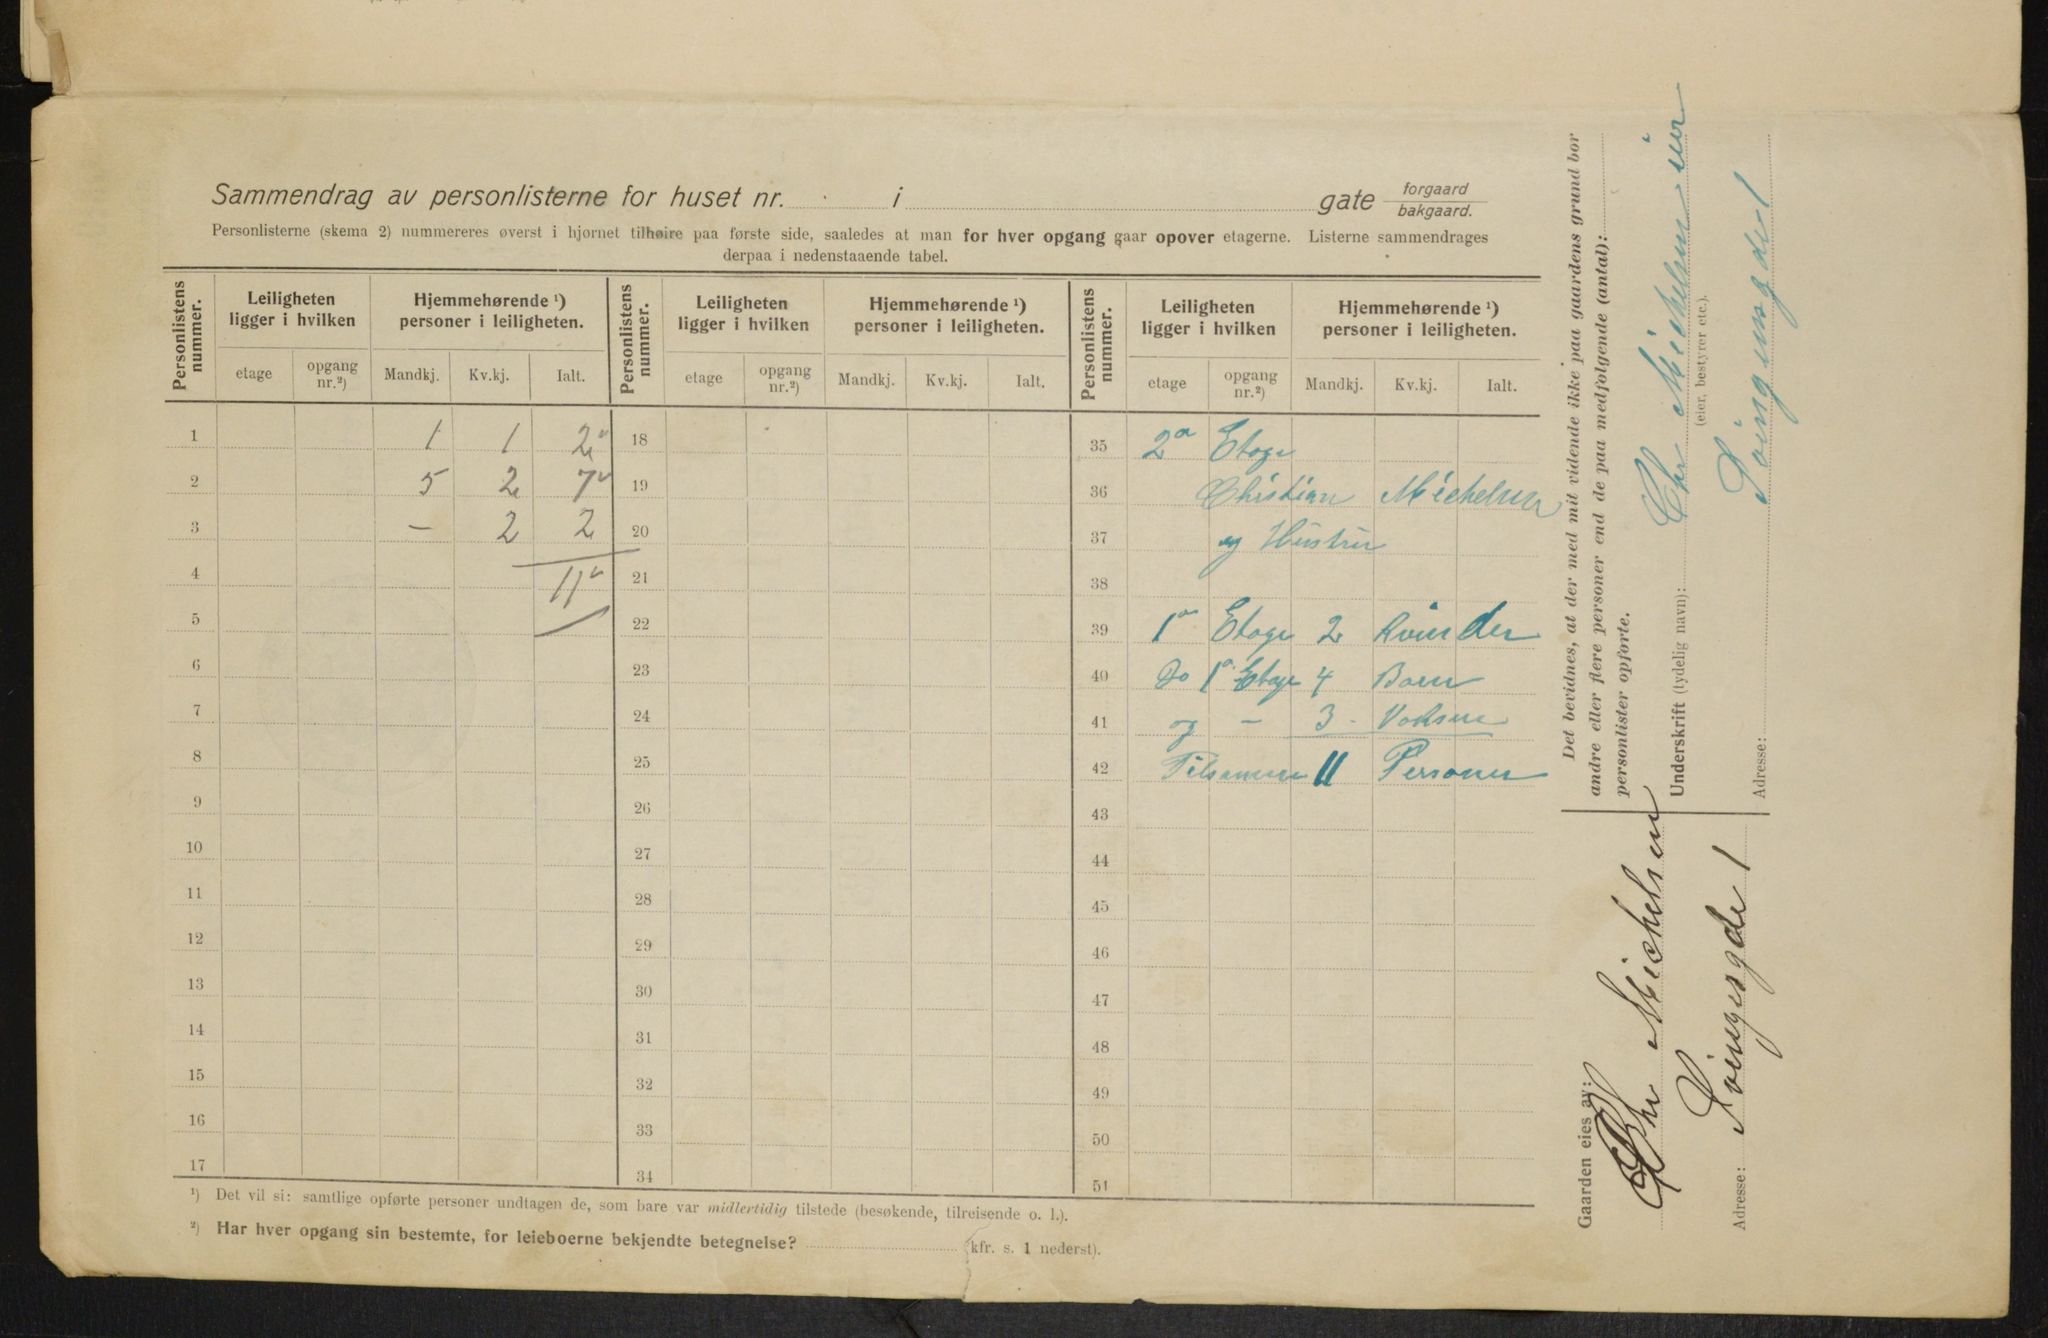 Sammendrag av personlisterne for huset nr. i gate forgaard bakgaard.
Personlisterne (skema 2) nummereres øverst i hjørnet tilhøire paa første side, saaledes at man for hver opgang gaar opover etagerne. Listerne sammendrages
derpaa i nedenstaaende tabel.
Personlistens nummer. Leiligheten ligger i hvilken Hjemmehørende ¹) personer i leiligheten. Personlistens nummer. Leiligheten ligger i hvilken Hjemmehørende ¹) personer i leiligheten. Personlistens nummer. Leiligheten ligger i hvilken Hjemmehørende ¹) personer i leiligheten.
etage opgang nr.²) Mandkj. Kv.kj. Ialt. etage opgang nr.²) Mandkj. Kv.kj. Ialt. etage opgang nr.²) Mandkj. Kv.kj. Ialt.
1 1 1 2 18 35 2a Etage
2 5 2 7 19 36 Christian Michelsen
3 – 2 2 20 37 og Hustru
4 11 21 38
5 22 39 1a Etage 2 Kvinder
6 23 40 Do 1a Etage 4 Børn
7 24 41 og – 3 Voksne
8 25 42 Tilsamen 11 Personer
9 26 43
10 27 44
11 28 45
12 29 46
13 30 47
14 31 48
15 32 49
16 33 50
17 34 51
¹) Det vil si: samtlige opførte personer undtagen de, som bare var midlertidig tilstede (besøkende, tilreisende o. l.).
²) Har hver opgang sin bestemte, for leieboerne bekjendte betegnelse? (kfr. s. 1 nederst).
Det bevidnes, at der med mit vidende ikke paa gaardens grund bor
andre eller flere personer end de paa medfølgende (antal):
personlister opførte.
Underskrift (tydelig navn): Chr Michelsen eier
(eier, bestyrer etc.).
Adresse: Svingensgade 1
Gaarden eies av:
Chr Michelsen
Adresse: Svingesgde 1